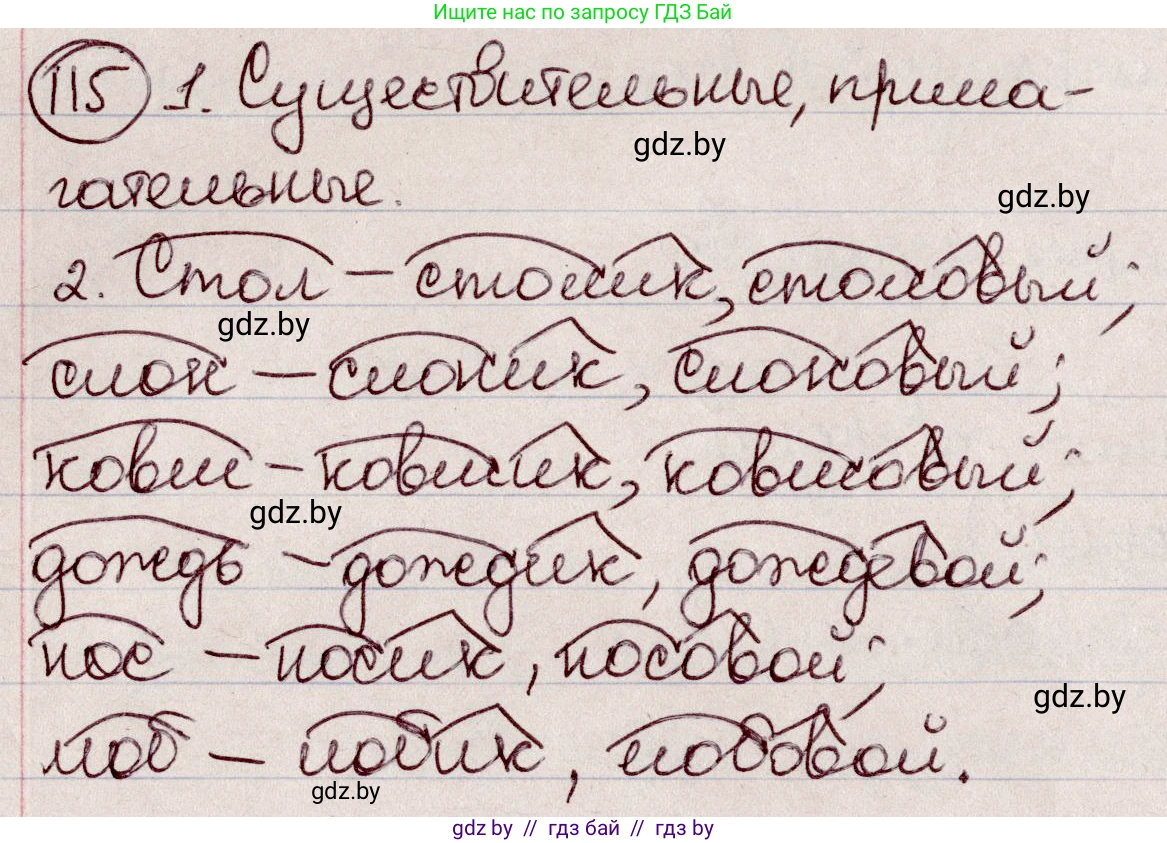 Ищите нас по запросу ГДЗ Бай
115 1. Существительные, прила-
gdz.by
гательные.
gdz.by
2. Стол – столик, столовый;
gdz.by
слон – слоник, слоновый;
ковш – ковшик, ковшовый;
gdz.by
дождь – дождик, дождевой;
нос – носик, носовой;
gdz.by
лоб – лобик, лобовой.
gdz.by
gdz.by // гдз бай // гдз by